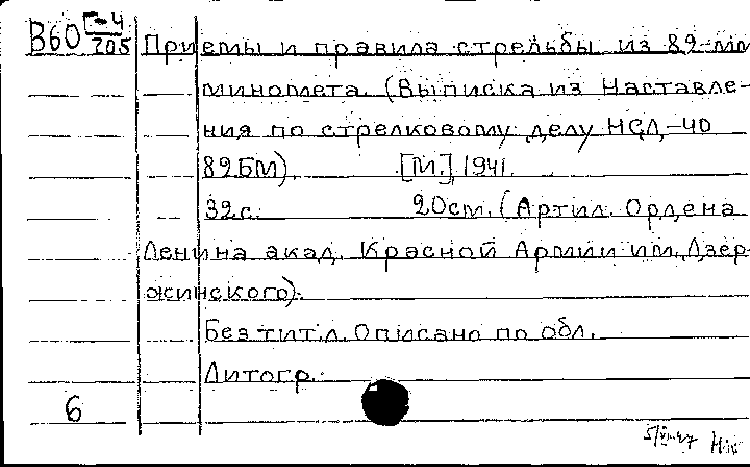 В60 Г-4/205
Приемы и правила стрельбы из 82-мм
миномета. (Выписка из Наставле-
ния по стрелковому делу НСД-40
82БМ). [М.], 1941.
32с. 20см. (Артил. Ордена
Ленина акад. Красной Армии им. Дзер-
жинского).
Без тит. л. Описано по обл.
Литогр.
6